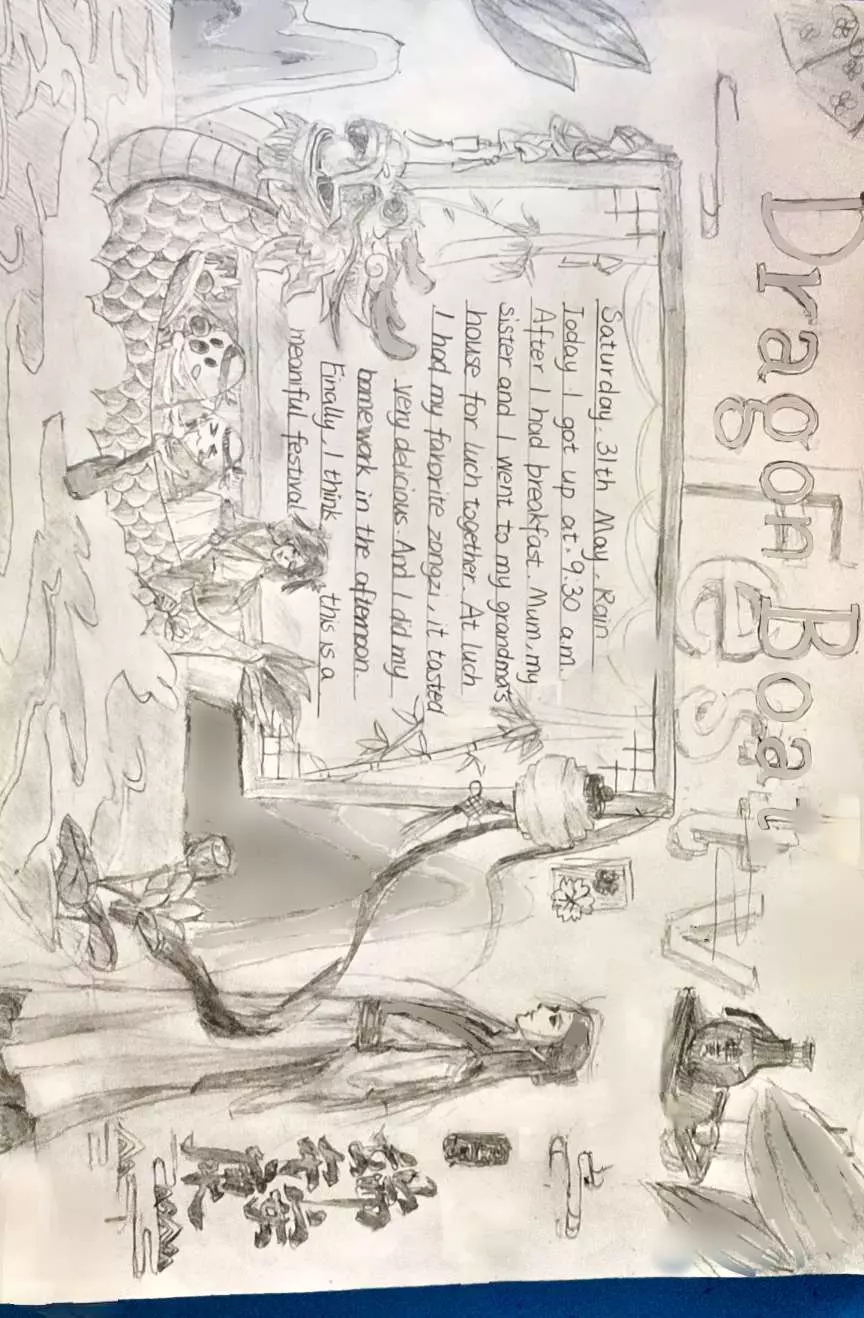 Dragon Boat
Festiv
Saturday. 31th May. Rain
Today I got up at. 9:30 a.m.
After I had breakfast. Mum, my
sister and I went to my grandma's
house for luch together. At luch
I had my favorite zongzi, it tasted
very delicious. And I did my
homework in the afternoon.
Finally, I think this is a
meaniful festival.
端午
安康